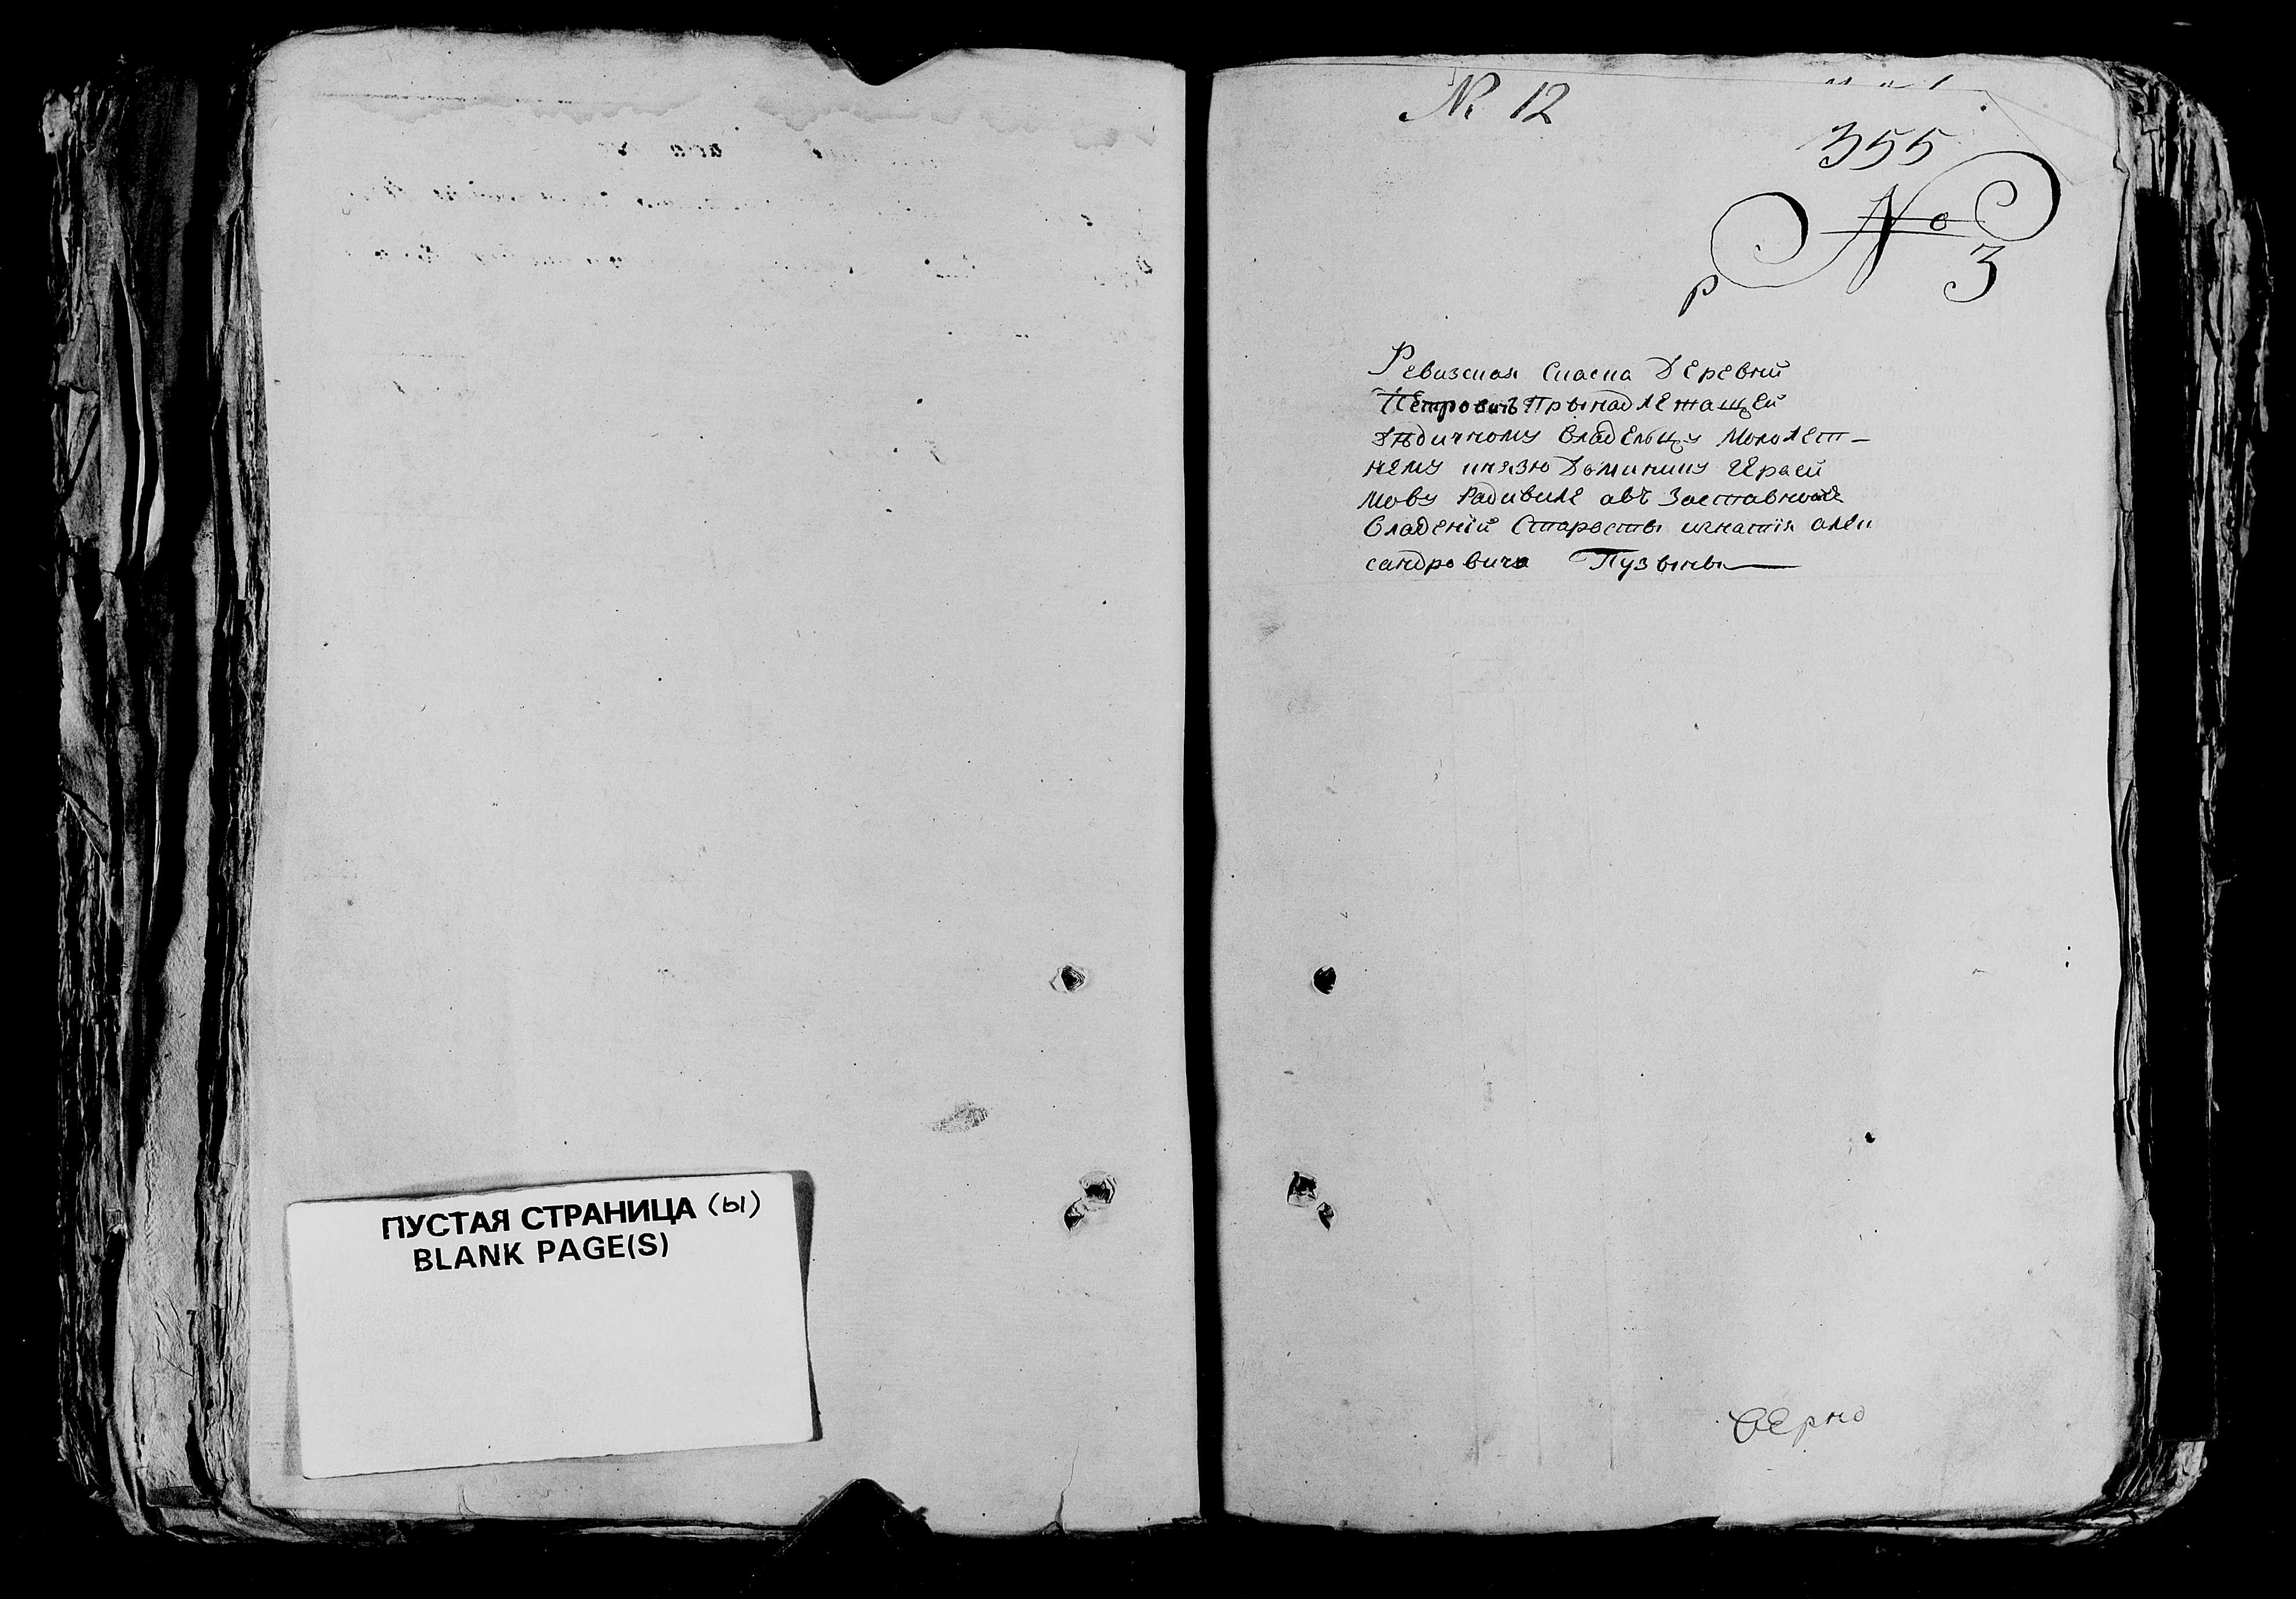 ПУСТАЯ СТРАНИЦА (ы)
BLANK PAGE(S)
№ 12
355
№ 3
Ревизская Сказка Деревни
Петровичъ Прынадлежащей
Дѣдичному Владельцу Мололет-
нему князю Доминику Герасы
мову Радивиле авъ Заставной
Владений Старосты игнатія алек
сандровича Пузыны
верно